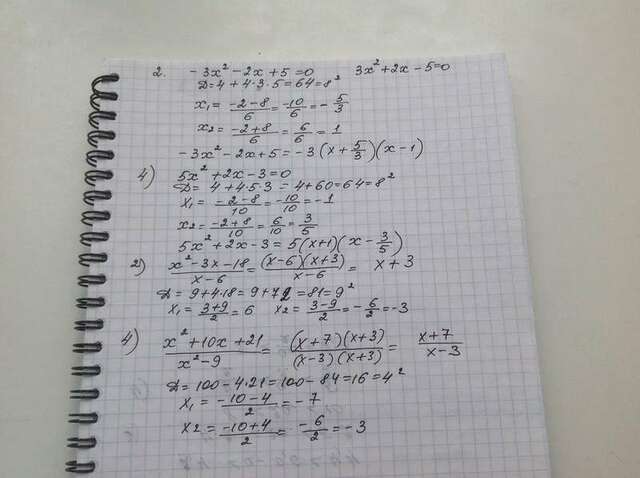 2. -3x² -2x +5 =0 3x² +2x -5=0
D=4 +4·3·5 =64=8²
x₁= (-2-8)/6 = -10/6 = -5/3
x₂= (-2+8)/6 = 6/6 = 1
-3x² -2x+5= -3(x+5/3)(x-1)
4) 5x² +2x -3=0
D= 4 +4·5·3 = 4+60=64=8²
x₁= (-2-8)/10 = -10/10 = -1
x₂= (-2+8)/10 = 6/10 = 3/5
5x² +2x -3 = 5(x+1)(x - 3/5)
2) (x² -3x -18)/(x-6) = (x-6)(x+3)/(x-6) = x+3
D= 9+4·18= 9+72=81=9²
x₁= (3+9)/2 = 6 x₂= (3-9)/2 = -6/2 = -3
4) (x² +10x +21)/(x² -9) = (x+7)(x+3)/(x-3)(x+3) = (x+7)/(x-3)
D=100 -4·21=100-84=16=4²
x₁= (-10-4)/2 = -7
x₂= (-10+4)/2 = -6/2 = -3